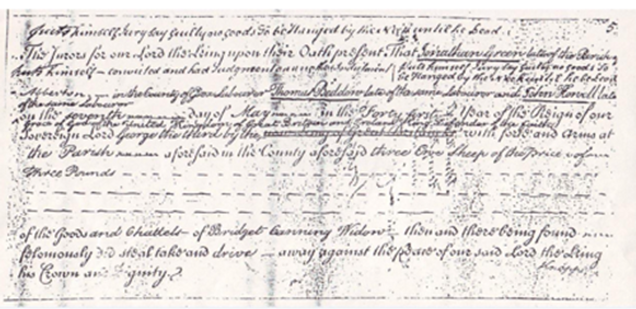 puts himself Jury say Guilty no goods To be Hanged by the Neck until he be dead 5
The Jurors for our Lord the King upon their Oath present That Jonathan Green late of the Parish
puts himself – convicted and had Judgment on another Indictment puts himself Jury say Guilty no goods To
be Hanged by the Neck until he be dead
in the County of Labourer Thomas late of the same Labourer and John late
of the same Labourer
on the seventh day of May in the Forty first Year of the Reign of our
of the United Kingdom of Great Britain and Ireland Defender of the Faith
Sovereign Lord George the third by the of Great Britain with force and Arms at
the Parish aforesaid in the County aforesaid three Ewe Sheep of the price of
Three Pounds
of the Goods and Chattels of Bridget Canning Widow then and there being found
feloniously did steal take and drive away against the peace of our said Lord the King
his Crown and Dignity